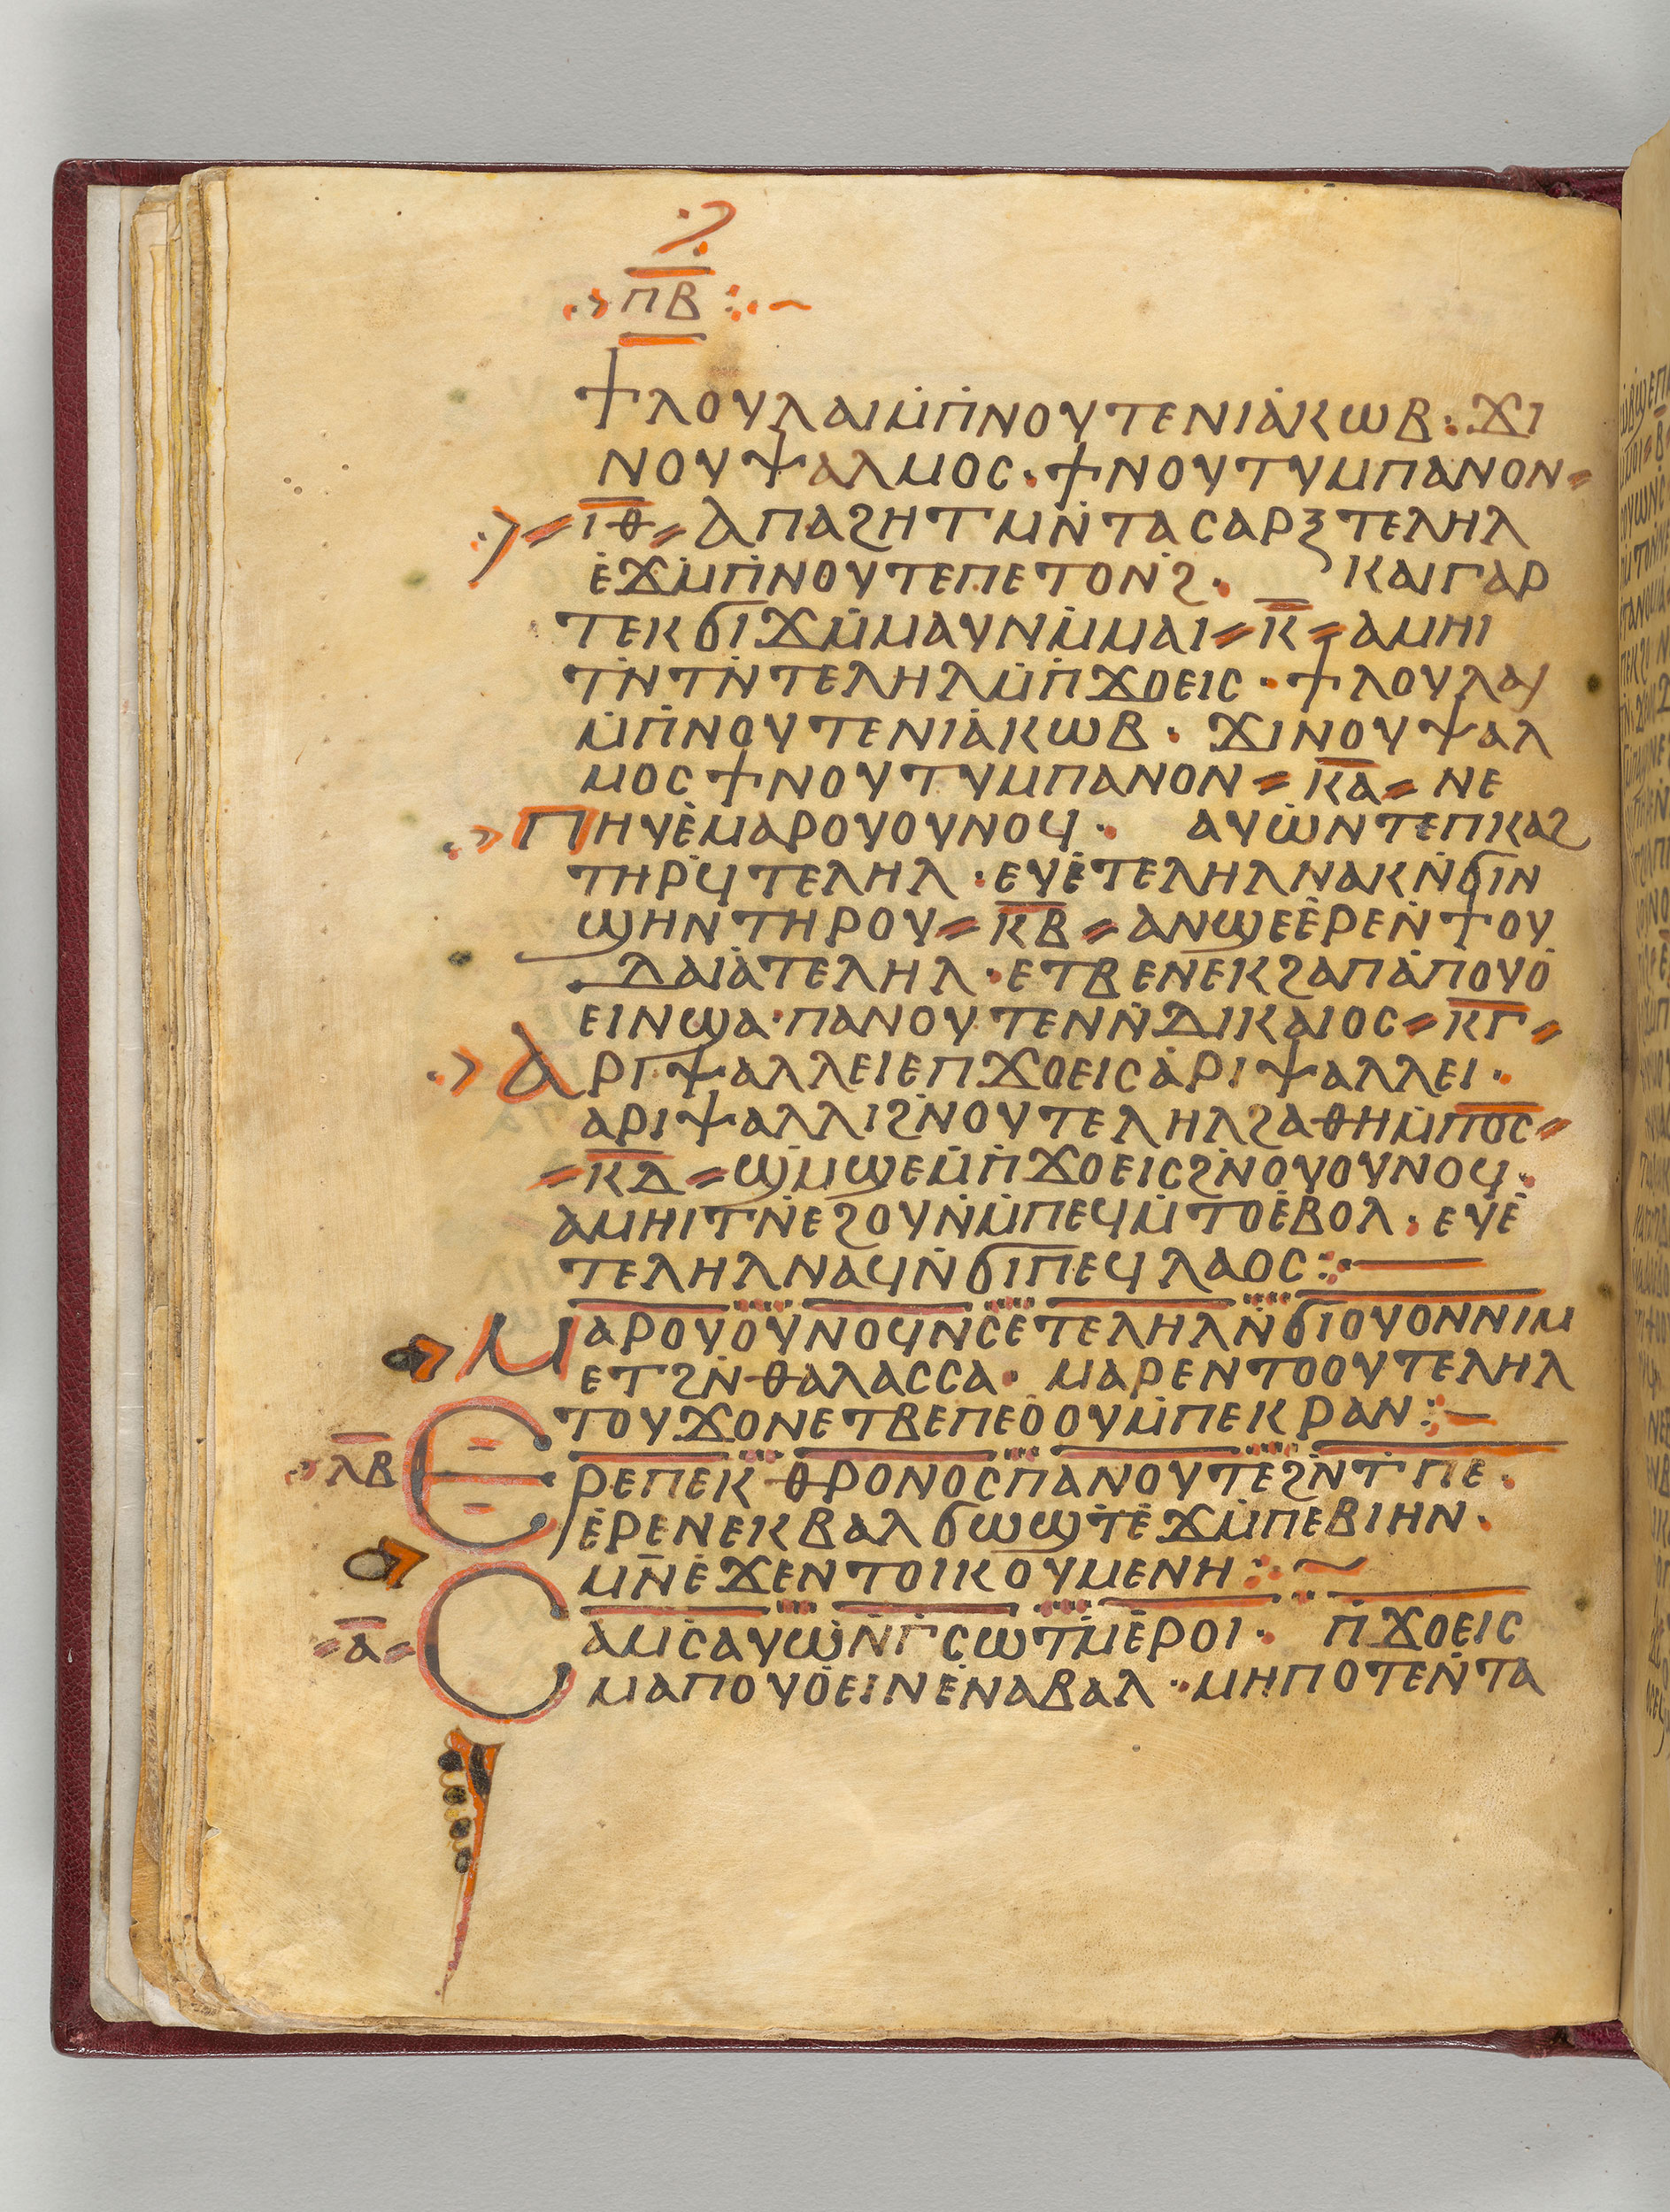 ⲡⲃ
ϯⲗⲟⲩⲗⲁⲓⲙ̇ⲡ̇ⲛⲟⲩⲧⲉⲛⲓⲁ̇ⲕⲱⲃ· ϫⲓ
ⲛⲟⲩⲯⲁⲗⲙⲟⲥ· ϯⲛⲟⲩⲧⲩⲙⲡⲁⲛⲟⲛ⸗
⸗ⲓ̅ⲑ̅⸗ ⲁⲡⲁϩⲏⲧⲙⲛ̇ⲧⲁⲥⲁⲣⲝⲧⲉⲗⲏⲗ
ⲉ̇ϫⲙ̇ⲡ̇ⲛⲟⲩⲧⲉⲡⲉⲧⲟⲛ̇ϩ· ⲕⲁⲓⲅⲁⲣ
ⲧⲉⲕϭⲓϫⲙ̇ⲙⲁⲩⲛⲙ̇ⲙⲁⲓ⸗ⲕ̅⸗ⲁⲙⲏⲓ
ⲧⲛ̇ⲧⲛ̇ⲧⲉⲗⲏⲗⲙ̇ⲡ̇ϫⲟⲉⲓⲥ· ϯⲗⲟⲩⲗⲁⲓ
ⲙ̇ⲡ̇ⲛⲟⲩⲧⲉⲛⲓⲁ̇ⲕⲱⲃ· ϫⲓⲛⲟⲩⲯⲁⲗ
ⲙⲟⲥϯⲛⲟⲩⲧⲩⲙⲡⲁⲛⲟⲛ⸗ⲕ̅ⲁ̅⸗ ⲛⲉ
ⲡⲏⲩⲉ̇ⲙⲁⲣⲟⲩⲟⲩⲛⲟϥ· ⲁⲩⲱ̇ⲛⲧⲉⲡⲕⲁϩ
ⲧⲏⲣϥ̇ⲧⲉⲗⲏⲗ· ⲉⲩⲉ̇ⲧⲉⲗⲏⲗⲛⲁⲕⲛ̇ϭⲓⲛ
ϣⲏⲛⲧⲏⲣⲟⲩ⸗ⲕ̅ⲃ̅⸗ⲁⲛϣⲉⲉ̇ⲣⲉⲛ̇ϯⲟⲩ
ⲇⲁⲓⲁ̇ⲧⲉⲗⲏⲗ· ⲉⲧⲃⲉⲛⲉⲕϩⲁⲡⲁ̇ⲡⲟⲩⲟ̇
ⲉⲓⲛϣⲁ·ⲡⲁⲛⲟⲩⲧⲉⲛⲛ̇ⲇⲓⲕⲁⲓⲟⲥ⸗ⲕ̅ⲅ̅⸗
ⲁⲣⲓⲯⲁⲗⲗⲉⲓⲉⲡϫⲟⲉⲓⲥⲁ̇ⲣⲓⲯⲁⲗⲗⲉⲓ·
ⲁⲣⲓⲯⲁⲗⲗⲓϩⲛ̇ⲟⲩⲧⲉⲗⲏⲗϩⲁⲑⲏⲙ̇ⲡⲟ̅ⲥ̅⸗
⸗ⲕ̅ⲇ̅⸗ϣⲙ̇ϣⲉⲙ̇ⲡ̇ϫⲟⲉⲓⲥϩⲛ̇ⲟⲩⲟⲩⲛⲟϥ·
ⲁⲙⲏⲓⲧⲛ̇ⲉϩⲟⲩⲛ̇ⲙ̇ⲡⲉϥⲙ̇ⲧⲟⲉ̇ⲃⲟⲗ· ⲉⲩⲉ̇
ⲧⲉⲗⲏⲗⲛⲁϥⲛ̇ϭⲓⲡⲉϥⲗⲁⲟⲥ:·—
ⲙⲁⲣⲟⲩⲟⲩⲛⲟϥⲛ̇ⲥⲉⲧⲉⲗⲏⲗⲛ̇ϭⲓⲟⲩⲟⲛⲛⲓⲙ
ⲉⲧϩⲛ̇ⲑⲁⲗⲁⲥⲥⲁ· ⲙⲁⲣⲉⲛⲧⲟⲟⲩⲧⲉⲗⲏⲗ
ⲧⲟⲩϫⲟⲛⲉⲧⲃⲉⲡⲉⲟ̇ⲟⲩⲙ̇ⲡⲉⲕⲣⲁⲛ:·—
ⲗ̅ⲃ̅ ⲉⲣⲉⲡⲉⲕⲑⲣⲟⲛⲟⲥⲡⲁⲛⲟⲩⲧⲉϩⲛ̇ⲧ̇ⲡⲉ·
ⲉ̇ⲣⲉⲛⲉⲕⲃⲁⲗϭⲱϣⲧ̇ⲉ̇ϫⲙ̇ⲡⲉⲃⲓⲏⲛ·
ⲙⲛ̅ⲉ̇ϫⲉⲛⲧⲟⲓⲕⲟⲩⲙⲉⲛⲏ:·~
⸗ⲁ̅⸗ ⲥⲁⲙⲥ̇ⲁⲩⲱ̇ⲛ̇ⲅ̇ⲥⲱⲧⲙ̇ⲉ̇ⲣⲟⲓ· ⲡ̇ϫⲟⲉⲓⲥ
ⲙⲁⲡⲟⲩⲟ̇ⲉⲓⲛⲉ̇ⲛⲁⲃⲁⲗ· ⲙⲏⲡⲟⲧⲉⲛ̇ⲧⲁ